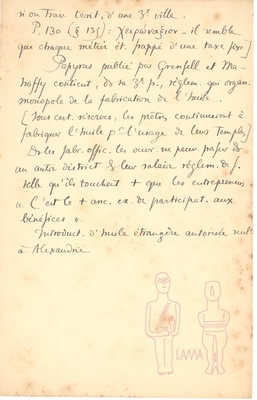 si on trav. ccnt. d'une 3e ville.
P. 130 (§ 135) : Χειρωνάξιον - il semble
que chaque métier ét. frappé d'une taxe fixe]
Papyrus publié par Grenfell et Ma-
haffy contient, ds sa 3e p., règlem. qui organ.
monopole de la fabrication de l'huile.
[Sous cert. réserves, les prêtres continuaient à
fabriquer l'huile pr l'usage de leurs Temples]
Ds les fabr. offic. les ouvr. ne peuv. passer ds
un autre district & leur salaire règlem. de f.
telle qu'ils touchent + que les entrepreneurs
« C'est le + anc. ex. de participat. aux
bénéfices ».
Introduct. d'huile étrangère autorisée seult
à Alexandrie
LAMA